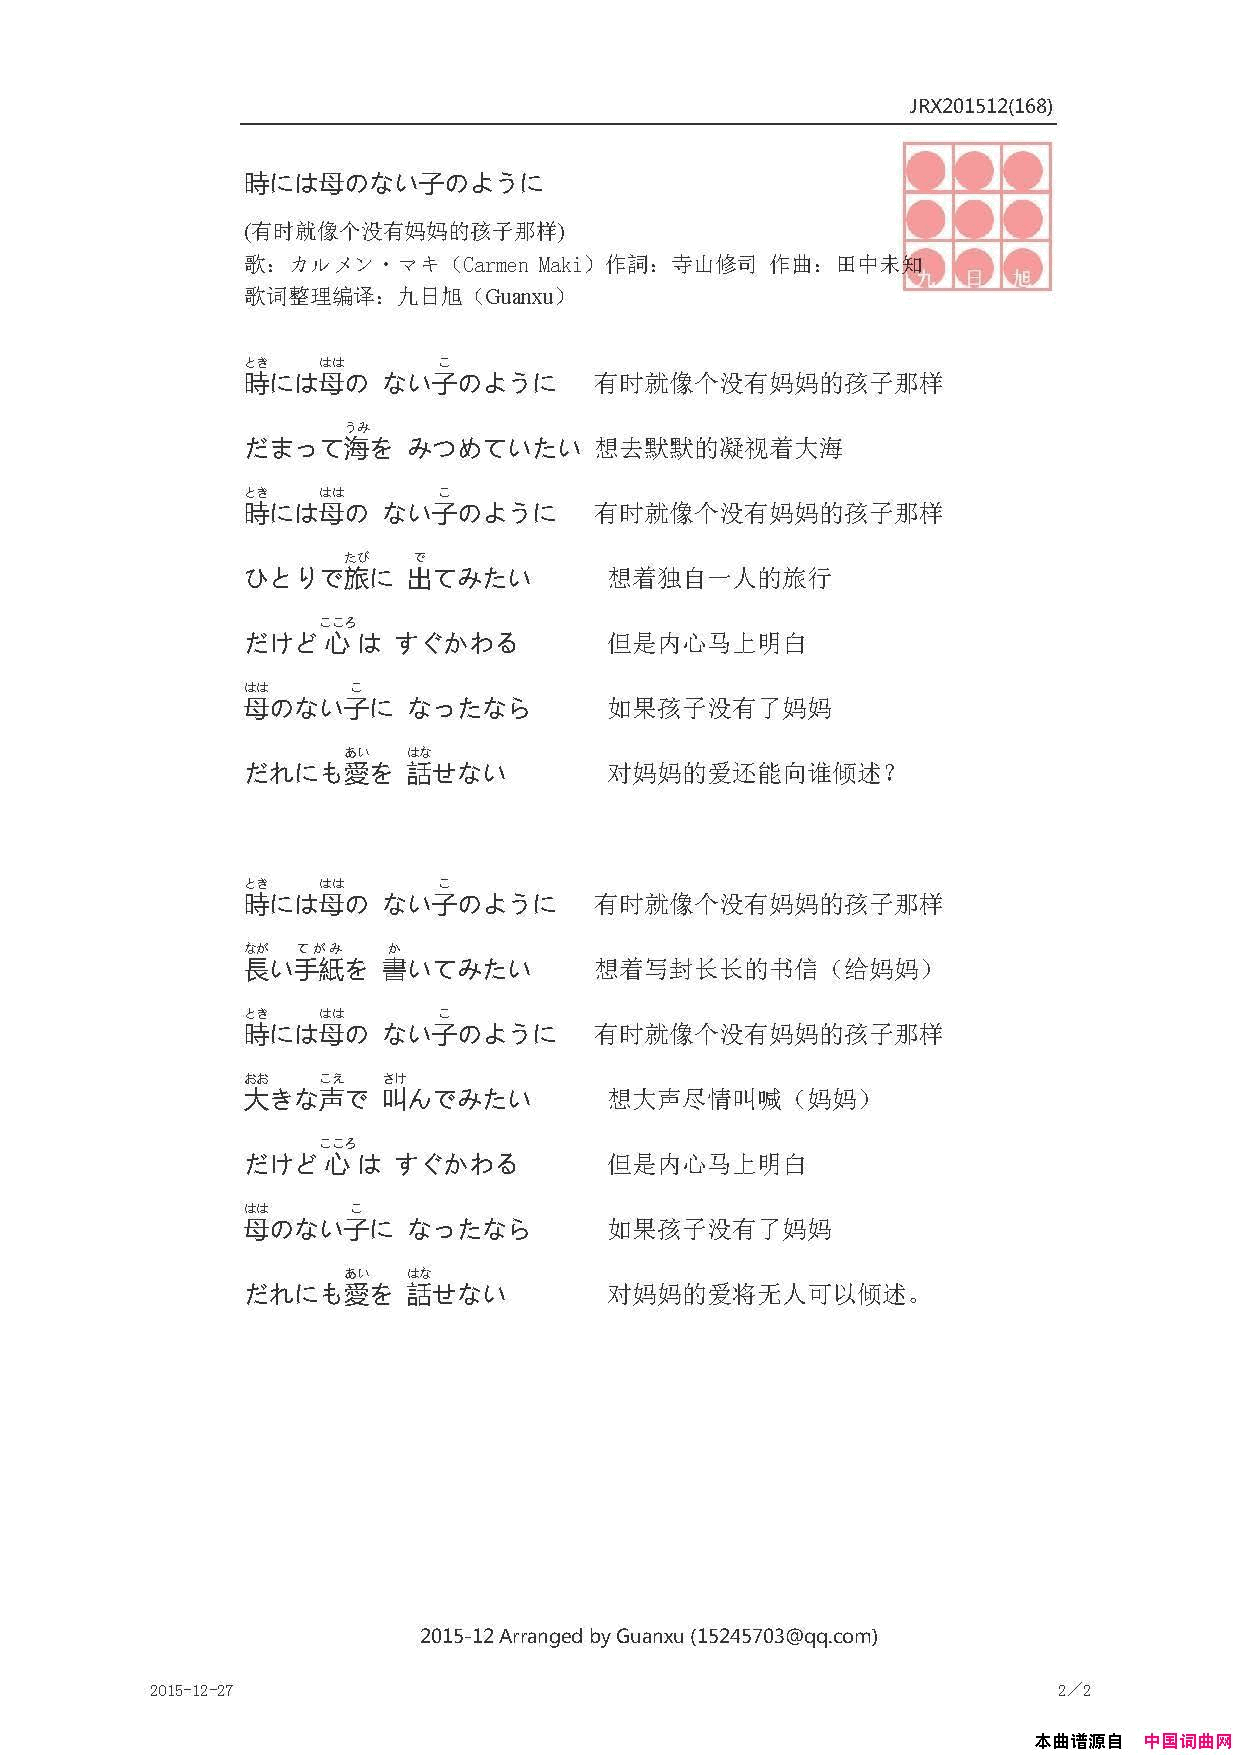 JRX201512(168)
時には母のない子のように
(有时就像个没有妈妈的孩子那样)
歌：カルメン・マキ（Carmen Maki）作詞：寺山修司 作曲：田中未知
九 日 旭
歌词整理编译：九日旭（Guanxu）
とき はは こ
時には母の ない子のように 有时就像个没有妈妈的孩子那样
うみ
だまって海を みつめていたい 想去默默的凝视着大海
とき はは こ
時には母の ない子のように 有时就像个没有妈妈的孩子那样
たび で
ひとりで旅に 出てみたい 想着独自一人的旅行
こころ
だけど心は すぐかわる 但是内心马上明白
はは こ
母のない子に なったなら 如果孩子没有了妈妈
あい はな
だれにも愛を 話せない 对妈妈的爱还能向谁倾述？
とき はは こ
時には母の ない子のように 有时就像个没有妈妈的孩子那样
なが てがみ か
長い手紙を 書いてみたい 想着写封长长的书信（给妈妈）
とき はは こ
時には母の ない子のように 有时就像个没有妈妈的孩子那样
おお こえ さけ
大きな声で 叫んでみたい 想大声尽情叫喊（妈妈）
こころ
だけど心は すぐかわる 但是内心马上明白
はは こ
母のない子に なったなら 如果孩子没有了妈妈
あい はな
だれにも愛を 話せない 对妈妈的爱将无人可以倾述。
2015-12 Arranged by Guanxu (15245703@qq.com)
2015-12-27 2／2
本曲谱源自 中国词曲网